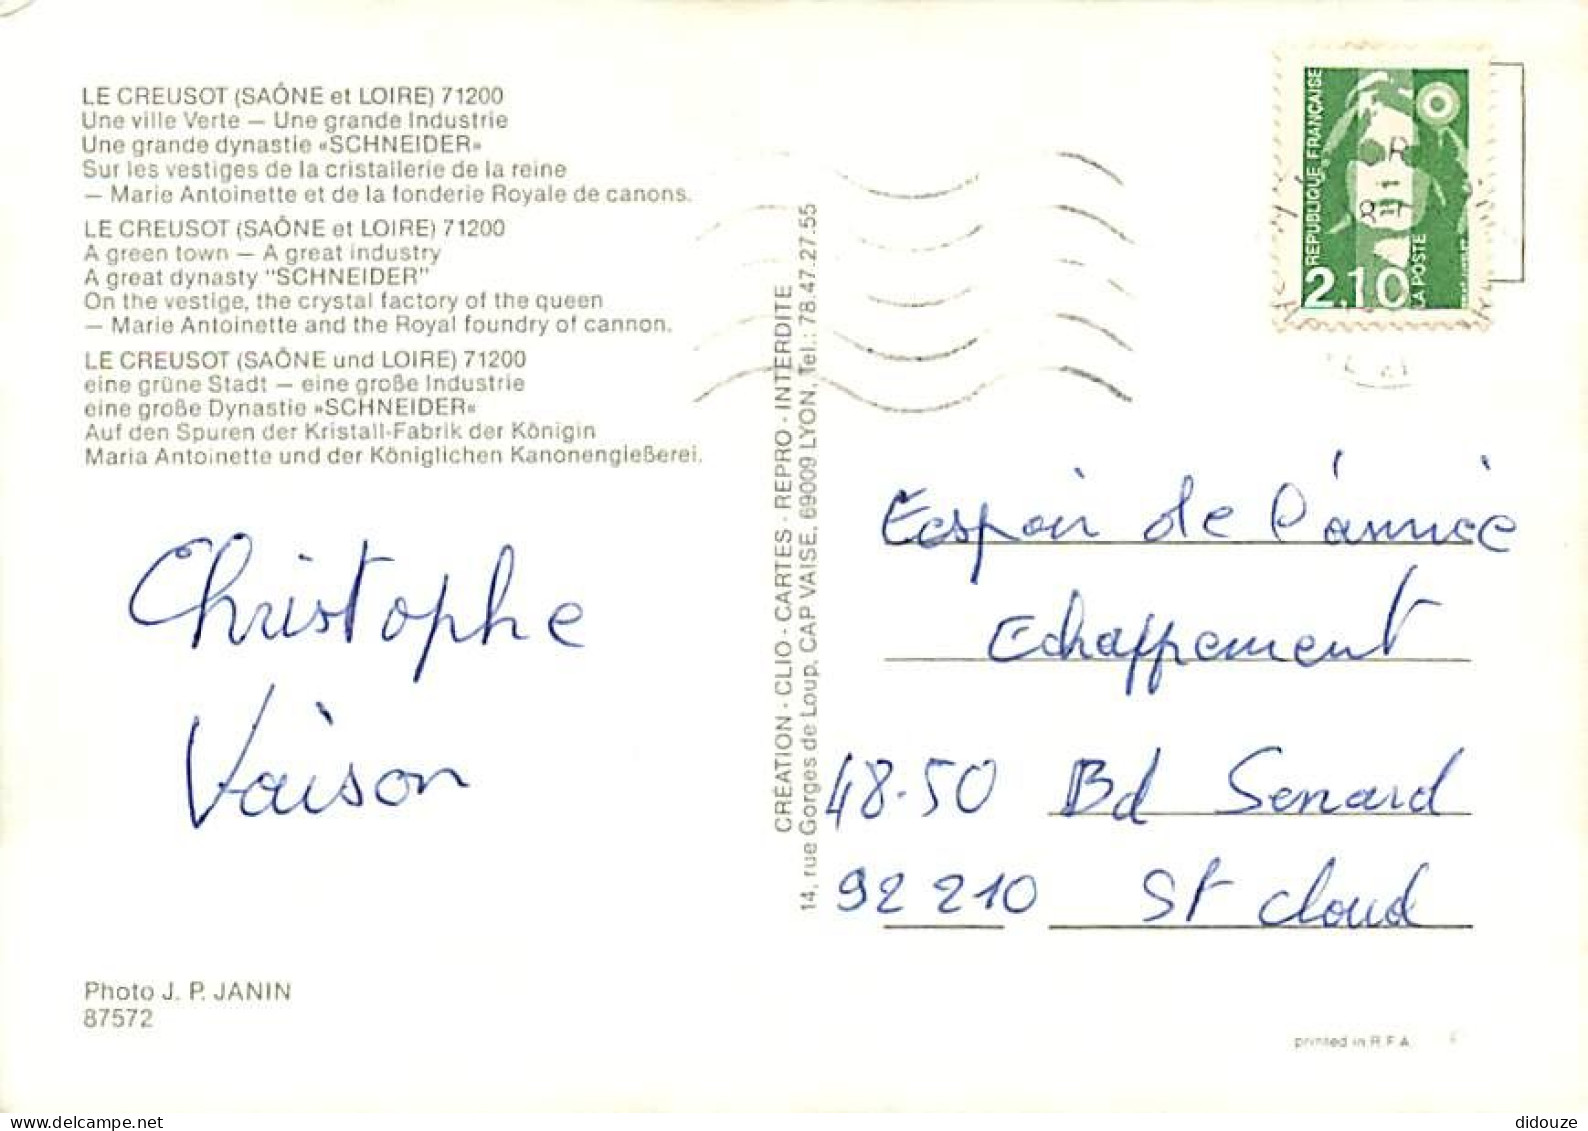 LE CREUSOT (SAÔNE et LOIRE) 71200
Une ville Verte — Une grande Industrie
Une grande dynastie «SCHNEIDER»
Sur les vestiges de la cristallerie de la reine
— Marie Antoinette et de la fonderie Royale de canons.
LE CREUSOT (SAÔNE et LOIRE) 71200
A green town — A great industry
A great dynasty "SCHNEIDER"
On the vestige, the crystal factory of the queen
— Marie Antoinette and the Royal foundry of cannon.
LE CREUSOT (SAÔNE und LOIRE) 71200
eine grüne Stadt — eine große Industrie
eine große Dynastie »SCHNEIDER«
Auf den Spuren der Kristall-Fabrik der Königin
Maria Antoinette und der Königlichen Kanonengießerei.
Christophe
Vaison
Photo J. P. JANIN
87572
CRÉATION - CLIO - CARTES - REPRO - INTERDITE
14, rue Gorges de Loup, CAP VAISE, 69009 LYON, Tel.: 78.47.27.55
REPUBLIQUE FRANÇAISE
2,10
LA POSTE
Espoir de l'année
Echappement
48-50 Bd Senard
92 210 St Cloud
printed in R.F.A.
didouze